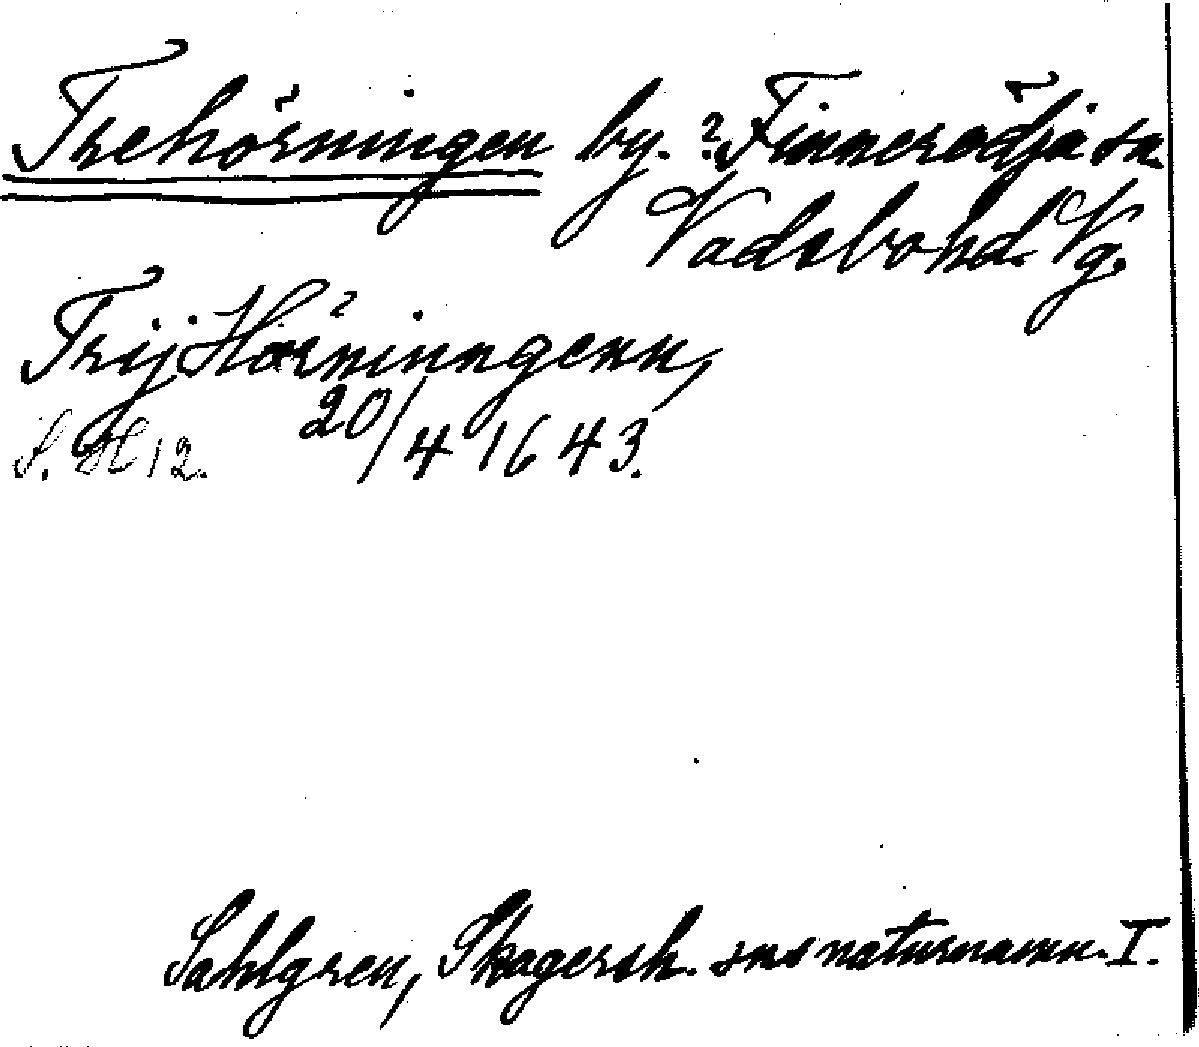 Trehörningen by. ? Finnerödja sn.
Vadsbo hd. Vg.
Trij Hörninngenn,
S. H 12. 20/4 1643.
Sahlgren, Skagersh. sns naturnamn. I.